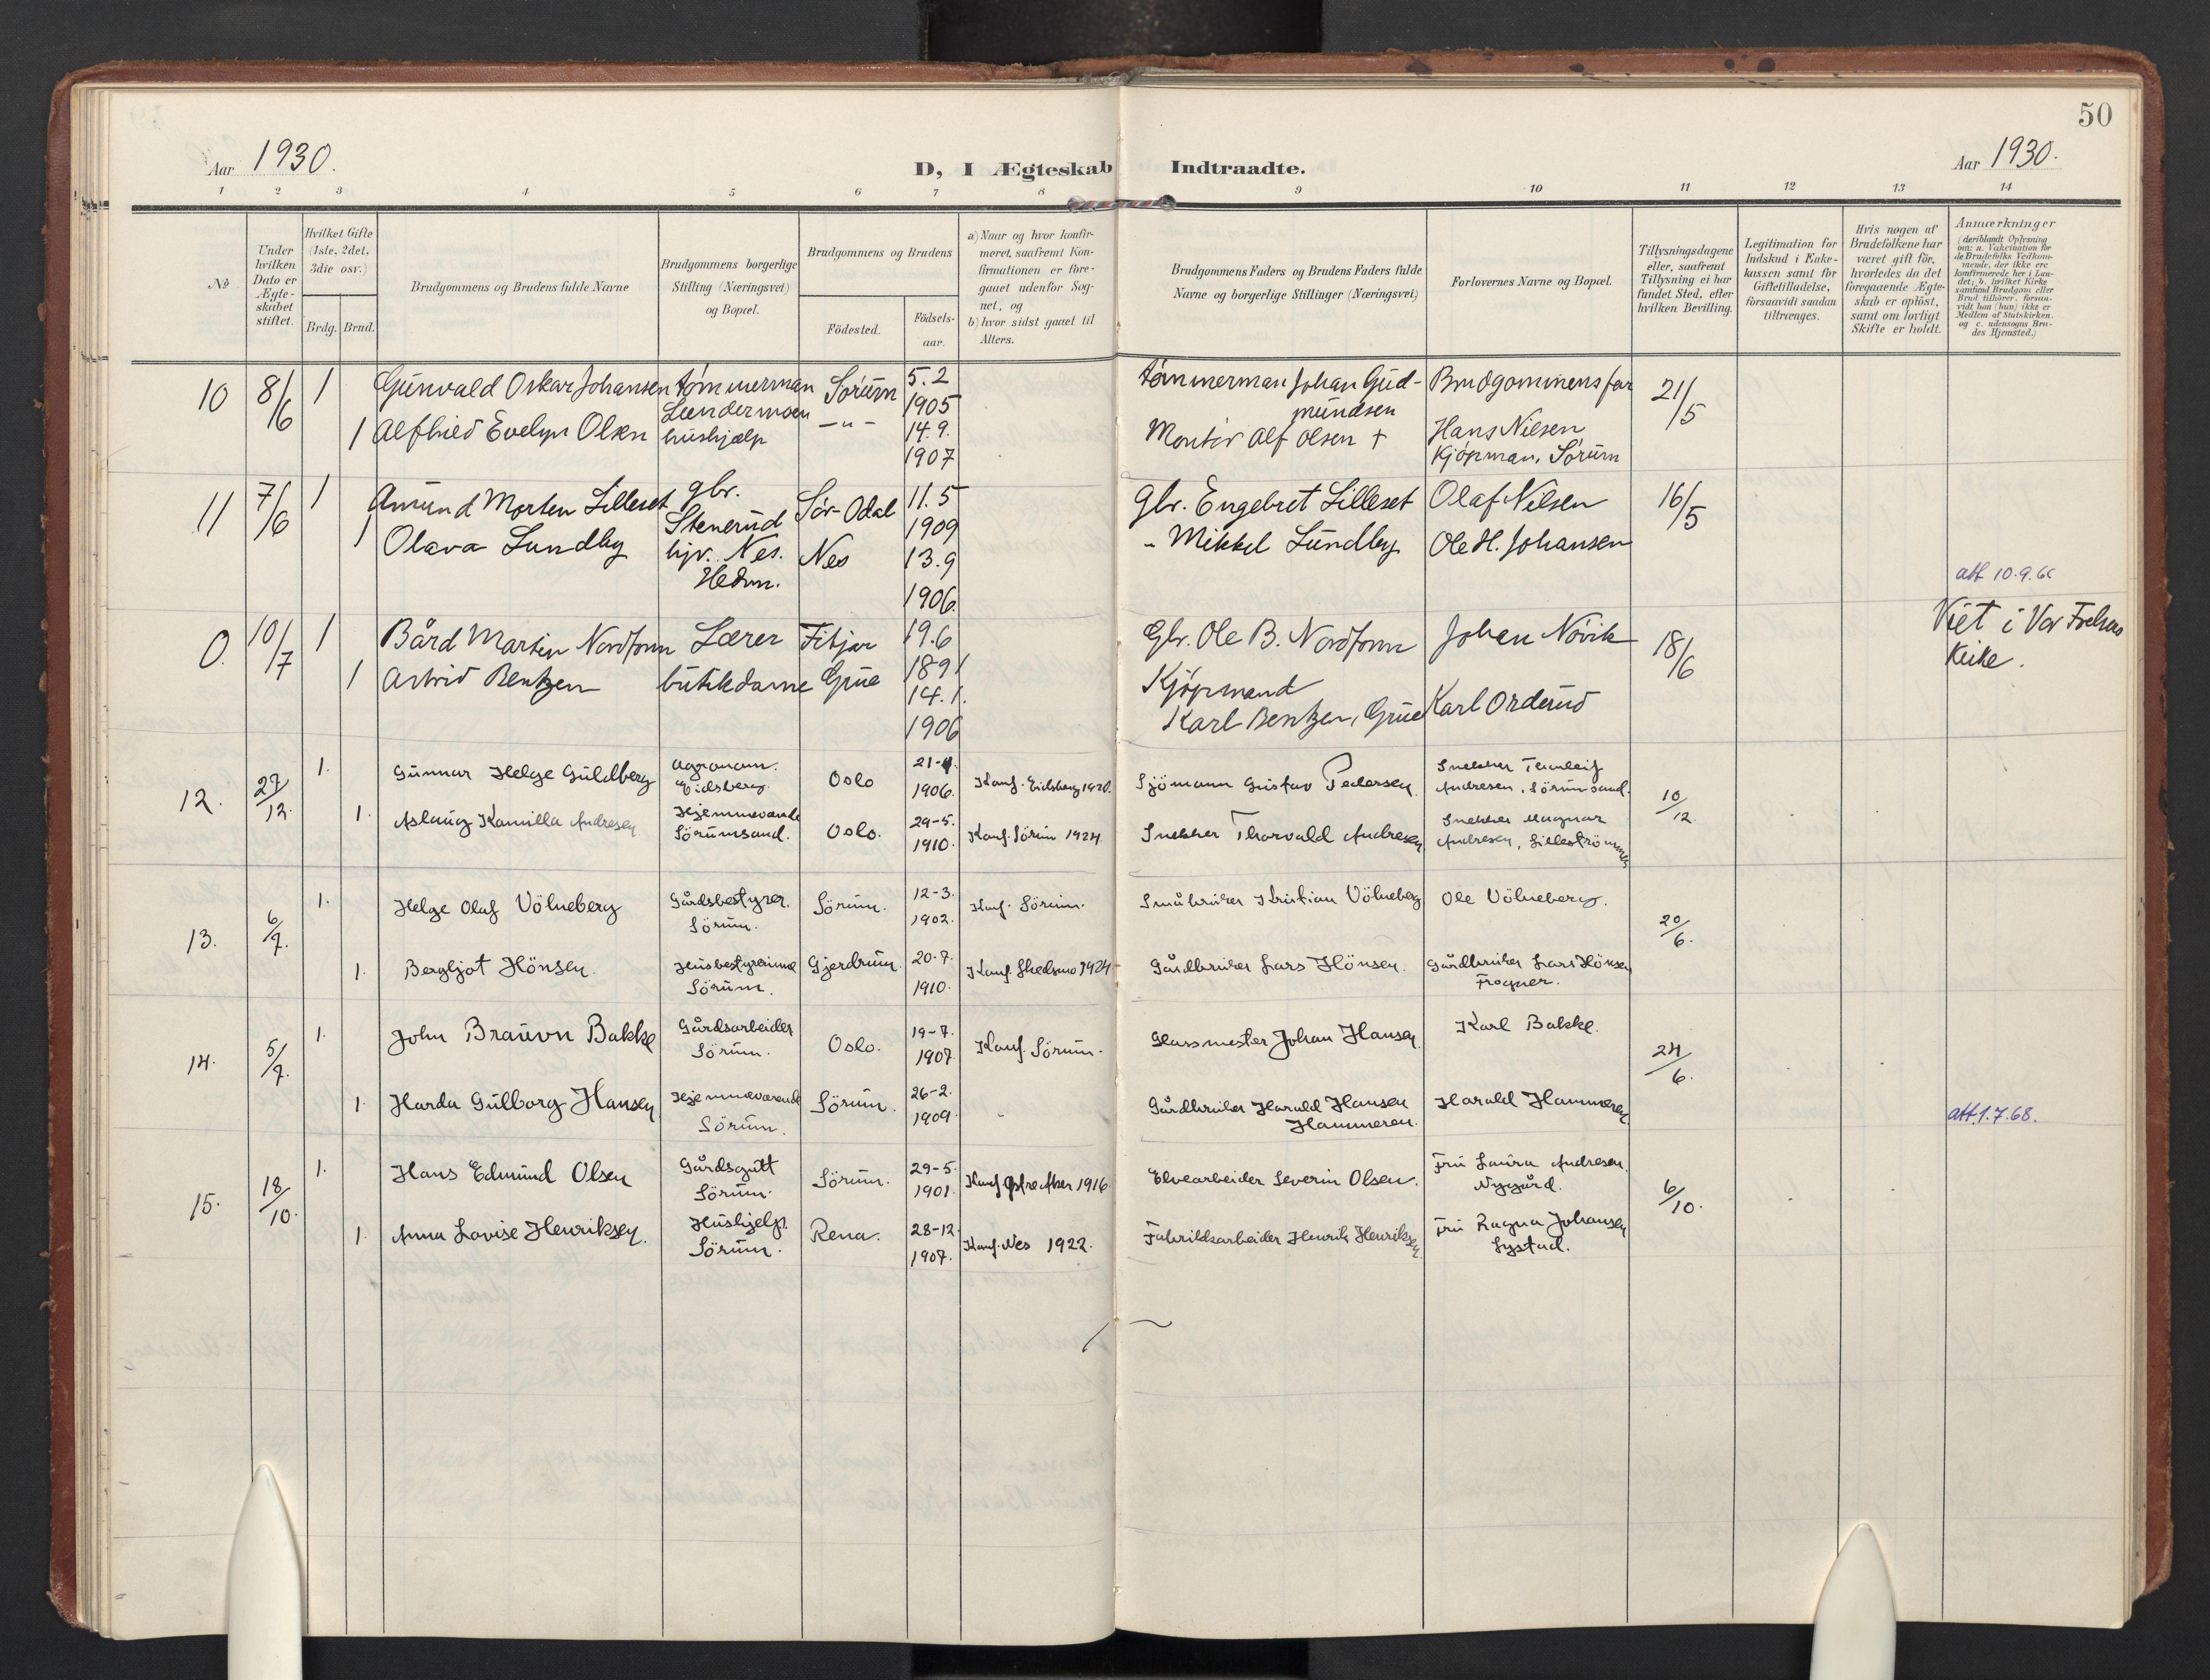 50
Aar 1930.
D, I Ægteskab Indtraadte.
Aar 1930.
1 2 3 4 5 6 7 8 9 10 11 12 13 14
No
Under hvilken Dato er Ægteskabet stiftet.
Hvilket Gifte (1ste, 2det, 3die osv.)
Brdg. Brud.
Brudgommens og Brudens fulde Navne
Brudgommens borgerlige Stilling (Næringsvei) og Bopæl.
Brudgommens og Brudens
Födested.
Födselsaar.
a) Naar og hvor konfirmeret, saafremt Konfirmationen er foregaaet udenfor Sognet, og
b) hvor sidst gaaet til Alters.
Brudgommens Faders og Brudens Faders fulde Navne og borgerlige Stillinger (Næringsvei)
Forlovernes Navne og Bopæl.
Tillysningsdagene eller, saafremt Tillysning ei har fundet Sted, efter hvilken Bevilling.
Legitimation for Indskud i Enkekassen samt for Giftetilladelse, forsaavidt saadan tiltrænges.
Hvis nogen af Brudefolkene har været gift för, hvorledes da det foregaaende Ægteskab er oplöst, samt om lovligt Skifte er holdt.
Anmærkninger
(deriblandt Oplysning om: a. Vakcination for de Brudefolks Vedkommende, der ikke ere konfirmerede her i Landet; b. hvilket Kirkesamfund Brudgom eller Brud tilhörer, forsaavidt han (hun) ikke er Medlem af Statskirken. og c. udensogns Brudes Hjemsted.)
10 8/6 1 Gunvald Oskar Johansen tømmerman Sørum 5.2 tømmerman Johan Gud- Brudgommens far 21/5
Lundermoen 1905 mundsen
1 Alfhild Evelyn Olsen hushjælp -"- 14.9. Montør Alf Olsen + Hans Nilsen
1907 Kjøpman, Sørum
11 7/6 1 Amund Morten Lilleset gbr. Sør-Odal 11.5 Gbr. Engebret Lilleset Olaf Nilsen 16/5
Stenerud 1909
1 Olava Lundby hjv. Nes. Nes 13.9 - Mikkel Lundby Ole H. Johansen
Hedm. 1906.
att 10.9.6
0. 10/7 1 Bård Martin Nordfonn Lærer Fitjar 19.6 Gbr. Ole B. Nordfonn Johan Nøvik 18/6 Viet i Vor Frelsers
1891 Kirke.
1 Astrid Bentzen butikdame Grue 14.1. Kjøpmand
1906 Karl Bentzen, Grue Karl Orderud
12. 27/12. 1. Gunnar Helge Guldberg Agronom. Oslo 21-4. Konf. Eidsberg 1920. Sjömann Gustav Pedersen. Snekker Thorleif
Eidsberg. 1906. Andresen, Sörumsand. 10/12
1. Aslaug Kamilla Andresen Hjemmeværende Oslo. 29-5. Konf. Sörum 1924. Snekker Thorvald Andresen Snekker Magnar
Sörumsand. 1910. Andresen, Lilleströmmen
13. 6/7. 1. Helge Olaf Völneberg Gårdsbestyrer. Sörum. 12-3. Konf. Sörum. Småbruker Kristian Völneberg Ole Völneberg. 20/6.
Sörum. 1902.
1. Bergljot Hönsen. Husbestyrerinne Gjerdrum. 20-7. Konf. Skedsmo 1924 Gårdbruker Lars Hönsen. Gårdbruker Lars Hönsen
Sörum. 1910. Frogner.
14. 5/7. 1. John Brauvn Bakke Gårdsarbeider Oslo. 19-7. Konf. Sörum. Glassmester Johan Hansen. Karl Bakke. 24/6.
Sörum. 1907.
1. Harda Gulborg Hansen Hjemmeværende Sörum. 26-2. Gårdbruker Harald Hansen Harald Hammeren att. 1.7.68.
Sörum. 1909. Hammeren.
15. 18/10. 1. Hans Edmund Olsen Gårdsgutt Sörum. 29-5. Konf. Østre Aker 1916. Elvearbeider Severin Olsen. Fru Laura Andresen. 6/10.
Sörum. 1901. Nygård.
1. Anna Lovise Henriksen. Hushjelp. Rena. 28-12. Konf. Nes 1922. Fabrikkarbeider Henrik Henriksen. Fru Ragna Johansen
Sörum. 1907. Lystad.